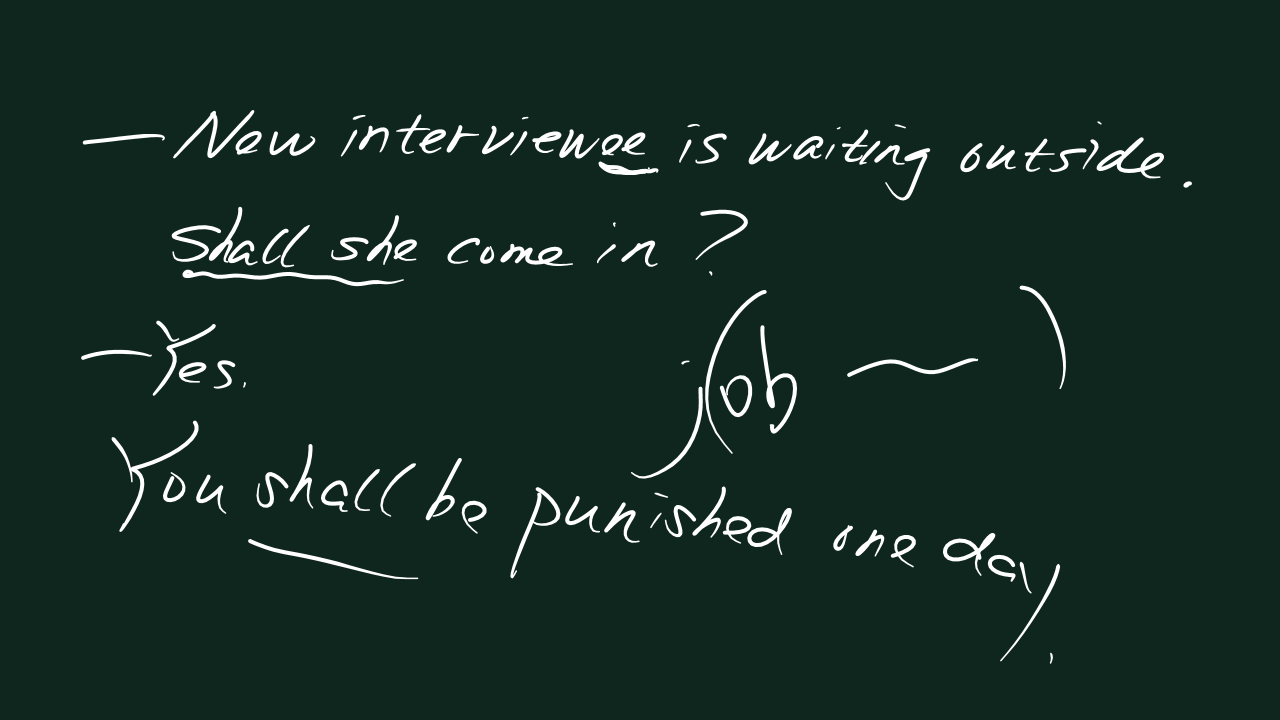 — New interviewee is waiting outside.
Shall she come in?
— Yes.
(job ~ )
You shall be punished one day.